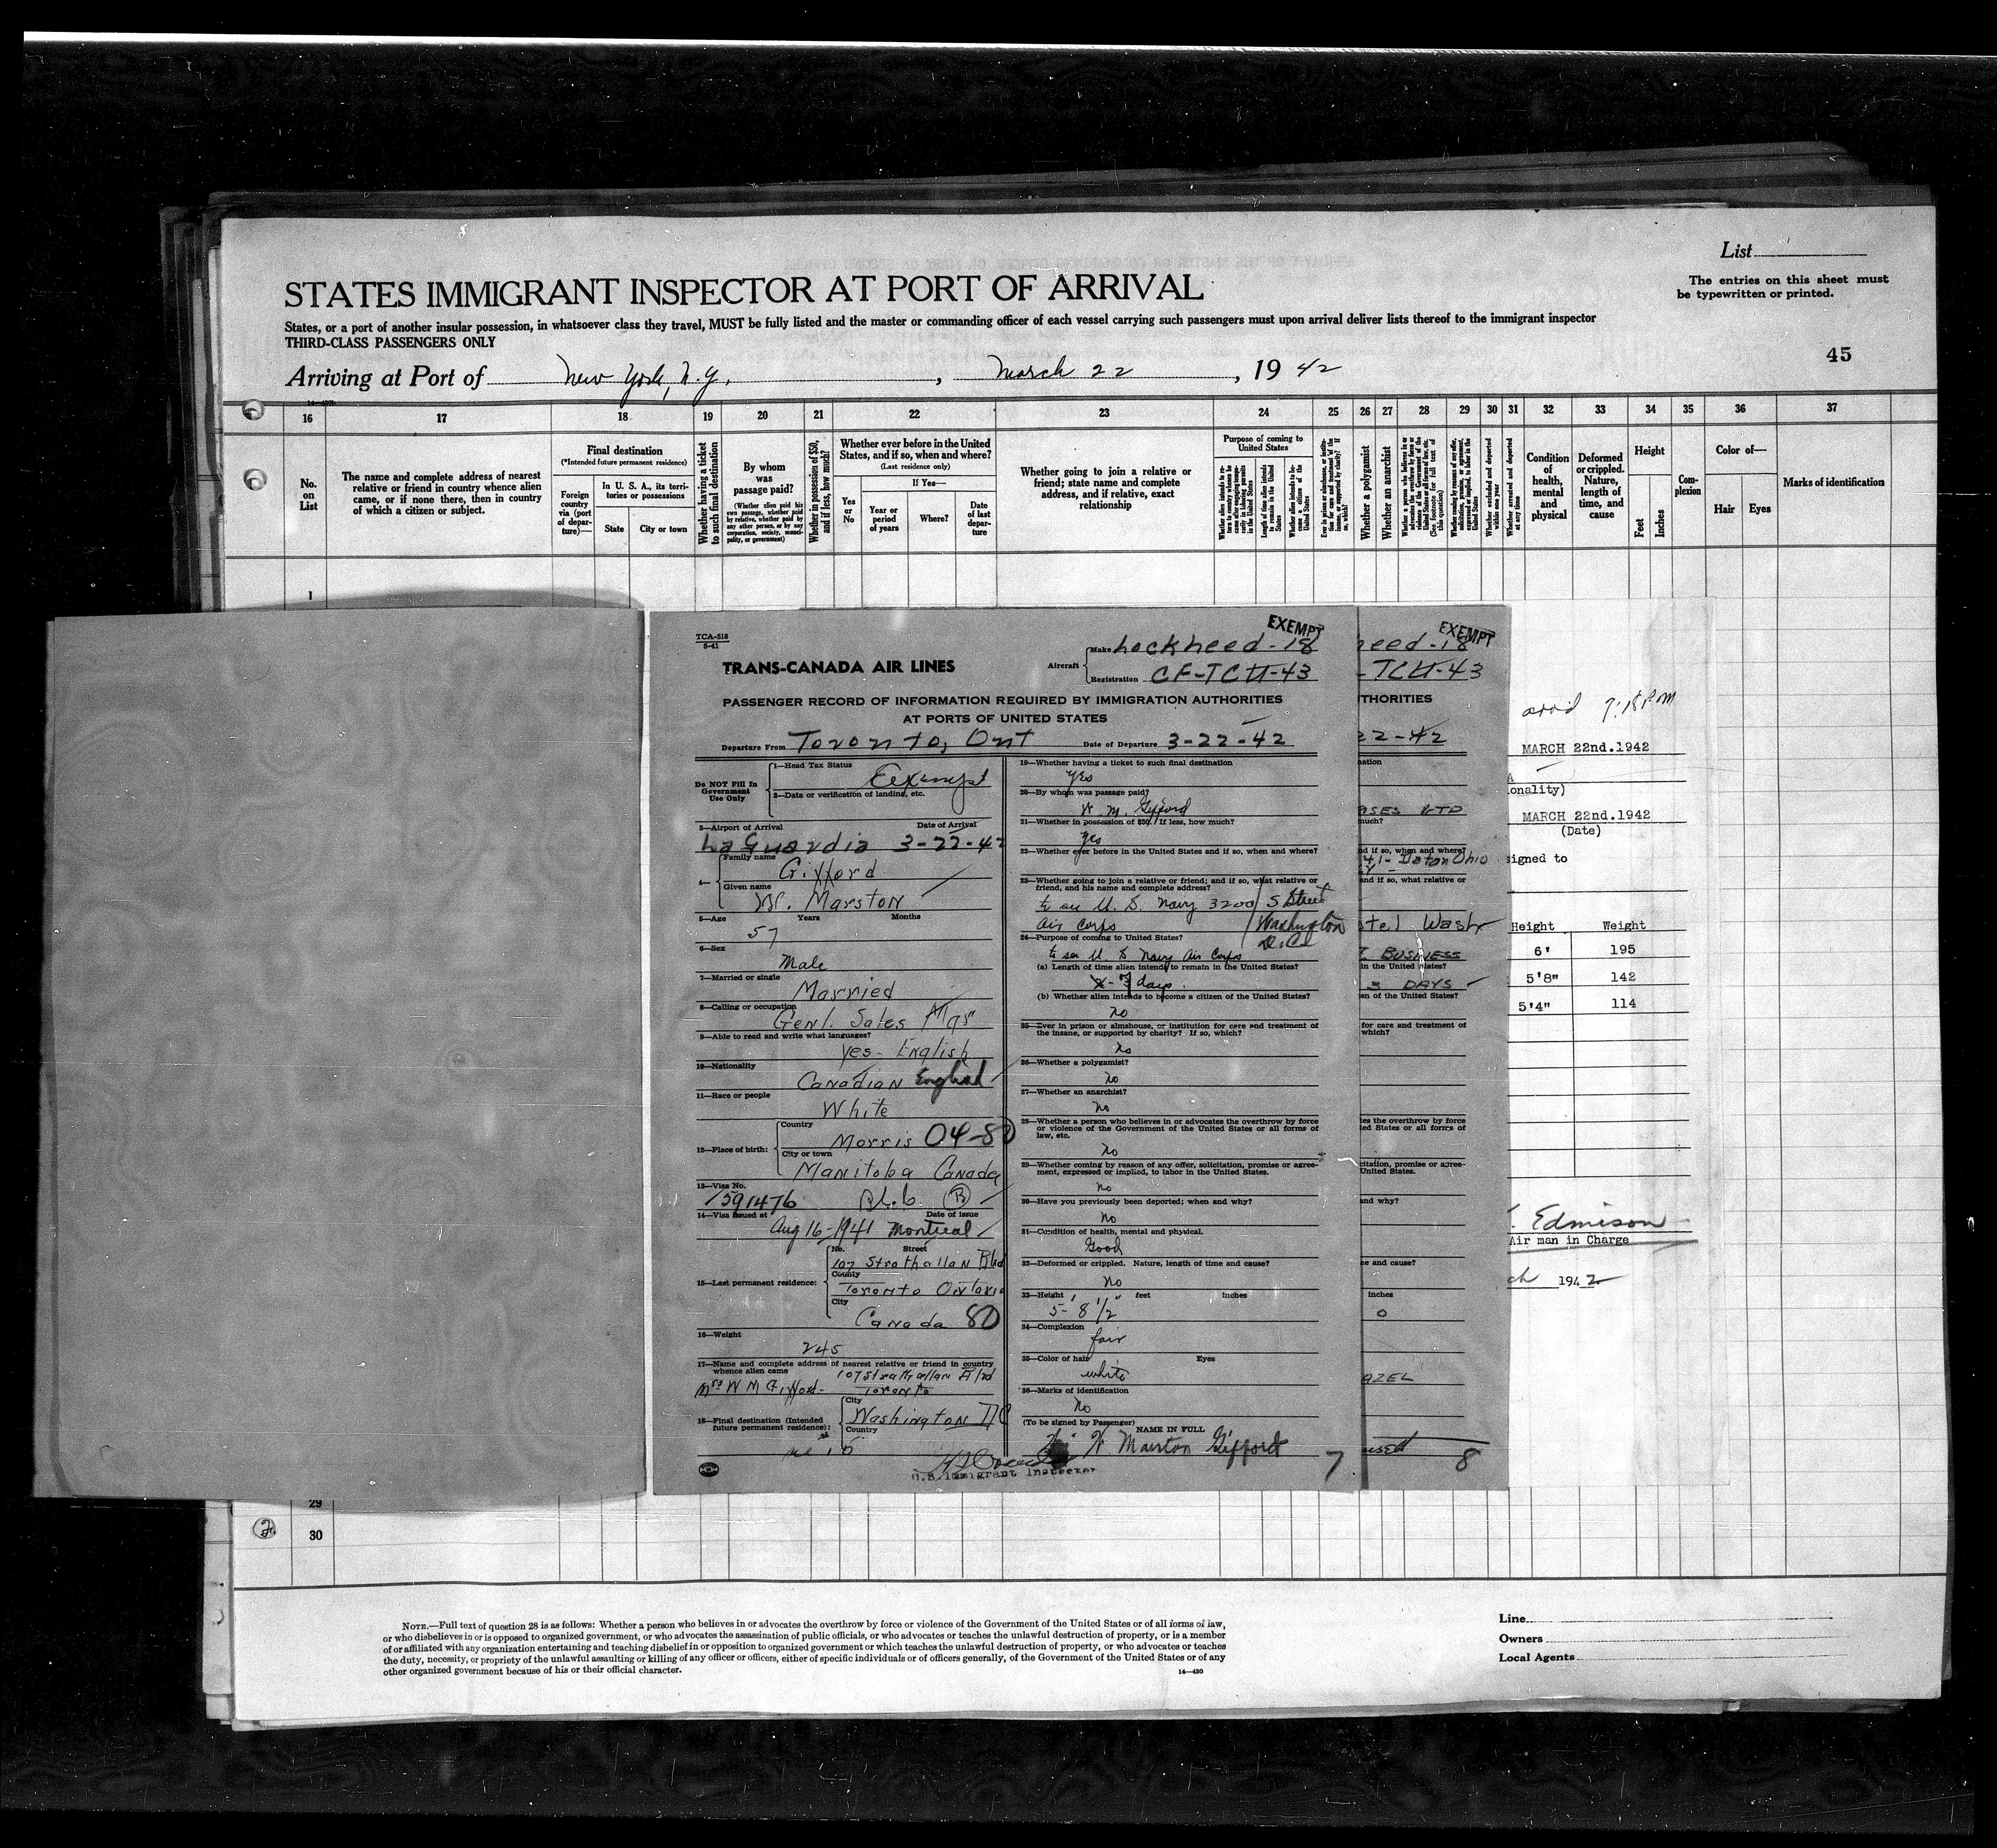 List
The entries on this sheet must
be typewritten or printed.
STATES IMMIGRANT INSPECTOR AT PORT OF ARRIVAL
States, or a port of another insular possession, in whatsoever class they travel, MUST be fully listed and the master or commanding officer of each vessel carrying such passengers must upon arrival deliver lists thereof to the immigrant inspector
THIRD-CLASS PASSENGERS ONLY
45
Arriving at Port of New York, N.Y., March 22, 1942
16 17 18 19 20 21 22 23 24 25 26 27 28 29 30 31 32 33 34 35 36 37
No. on List
The name and complete address of nearest
relative or friend in country whence alien
came, or if none there, then in country
of which a citizen or subject.
Final destination
(*Intended future permanent residence)
Foreign country via (port of departure)—
In U. S. A., its territories or possessions
State
City or town
Whether having a ticket to such final destination
By whom was passage paid?
(Whether alien paid his own passage, whether paid by relative, whether paid by any other person, or by any corporation, society, municipality, or government)
Whether in possession of $50, and if less, how much?
Whether ever before in the United
States, and if so, when and where?
(Last residence only)
Yes or No
If Yes—
Year or period of years
Where?
Date of last departure
Whether going to join a relative or
friend; state name and complete
address, and if relative, exact
relationship
Purpose of coming to United States
Whether a polygamist
Whether an anarchist
Condition of health, mental and physical
Deformed or crippled. Nature, length of time, and cause
Height
Feet
Inches
Complexion
Color of—
Hair
Eyes
Marks of identification
1
TCA-518
5-41
TRANS-CANADA AIR LINES
EXEMPT
Aircraft
Make Lockheed-18
Registration CF-TCH-43
PASSENGER RECORD OF INFORMATION REQUIRED BY IMMIGRATION AUTHORITIES
AT PORTS OF UNITED STATES
Departure From Toronto, Ont Date of Departure 3-22-42
Do NOT Fill In
Government
Use Only
1—Head Tax Status
Exempt
2—Data or verification of landing, etc.
3—Airport of Arrival Date of Arrival
LaGuardia 3-22-42
4—
Family name
Gifford
Given name
W. Marston
5—Age Years Months
57
6—Sex
Male
7—Married or single
Married
8—Calling or occupation
Genl. Sales Mgr
9—Able to read and write what languages?
Yes - English
10—Nationality
Canadian English
11—Race or people
White
12—Place of birth:
Country
Morris 04-80
City or town
Manitoba Canada
13—Visa No.
1591476
14—Visa issued at Date of issue
Aug 16-1941 Montreal
15—Last permanent residence:
No. Street
107 Strathallan Blvd
County
Toronto Ontario
City
Canada 80
16—Weight
245
17—Name and complete address of nearest relative or friend in country
whence alien came
107 Strathallan Blvd
Mrs W M Gifford - Toronto
18—Final destination (Intended
future permanent residence):
City
Washington DC
Country
U.S. Immigrant Inspector
19—Whether having a ticket to such final destination
Yes
20—By whom was passage paid?
W. M. Gifford
21—Whether in possession of $50. If less, how much?
Yes
22—Whether ever before in the United States and if so, when and where?
23—Whether going to join a relative or friend; and if so, what relative or
friend, and his name and complete address?
to see U. S. Navy 3200 S Street
Air Corps Washington
D.C.
24—Purpose of coming to United States?
to see U. S Navy Air Corps
(a) Length of time alien intends to remain in the United States?
days
(b) Whether alien intends to become a citizen of the United States?
no
25—Ever in prison or almshouse, or institution for care and treatment of
the insane, or supported by charity? If so, which?
no
26—Whether a polygamist?
no
27—Whether an anarchist?
no
28—Whether a person who believes in or advocates the overthrow by force
or violence of the Government of the United States or all forms of
law, etc.
no
29—Whether coming by reason of any offer, solicitation, promise or agree-
ment, expressed or implied, to labor in the United States.
no
30—Have you previously been deported; when and why?
No
31—Condition of health, mental and physical.
Good
32—Deformed or crippled. Nature, length of time and cause?
No
33—Height feet inches
5 - 8 1/2"
34—Complexion
fair
35—Color of hair Eyes
white
36—Marks of identification
No
(To be signed by Passenger)
NAME IN FULL
W. Marston Gifford
7
EXEMPT
eed-18
-TCH-43
THORITIES
22-42
nation
ASES LTD
much?
nd if so, when and where?
and if so, what relative or
tel Wash
BUSINESS
in the United States?
3 DAYS
en of the United States?
for care and treatment of
which?
tes the overthrow by force
ted States or all forms of
citation, promise or agree-
United States.
and why?
ne and cause?
inches
0
AZEL
8
7:18 PM
MARCH 22nd.1942
onality)
MARCH 22nd.1942
(Date)
signed to
Height Weight
6' 195
5'8" 142
5'4" 114
Edmison
Air man in Charge
ch 1942
29
30
NOTE.—Full text of question 28 is as follows: Whether a person who believes in or advocates the overthrow by force or violence of the Government of the United States or of all forms of law,
or who disbelieves in or is opposed to organized government, or who advocates the assassination of public officials, or who advocates or teaches the unlawful destruction of property, or is a member
of or affiliated with any organization entertaining and teaching disbelief in or opposition to organized government or which teaches the unlawful destruction of property, or who advocates or teaches
the duty, necessity, or propriety of the unlawful assaulting or killing of any officer or officers, either of specific individuals or of officers generally, of the Government of the United States or of any
other organized government because of his or their official character.
14—430
Line
Owners
Local Agents